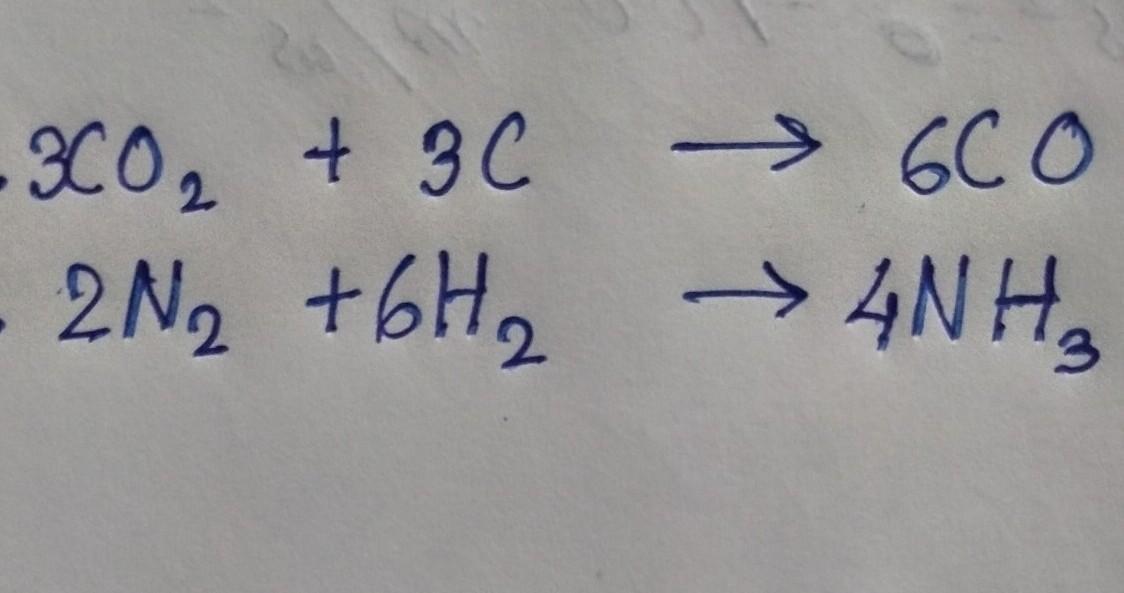 3CO₂ + 3C → 6CO
2N₂ + 6H₂ → 4NH₃